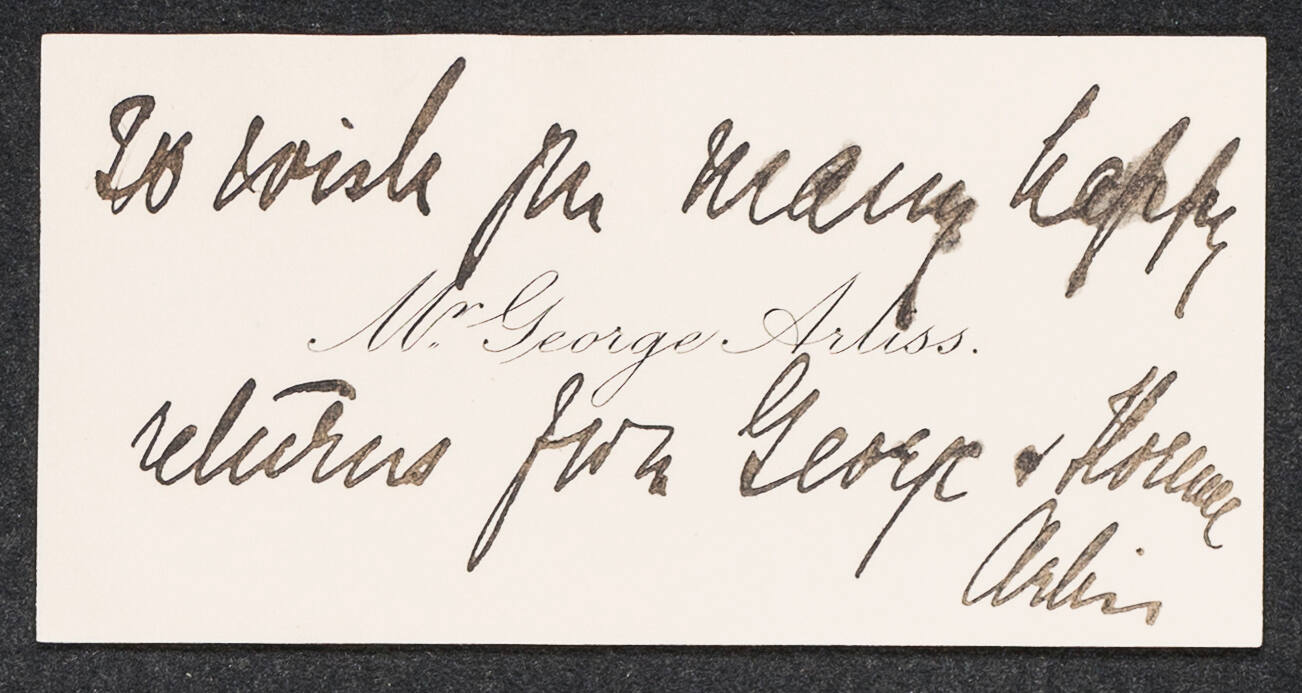 To wish you many happy
Mr. George Arliss.
returns from George & Florence
Arliss